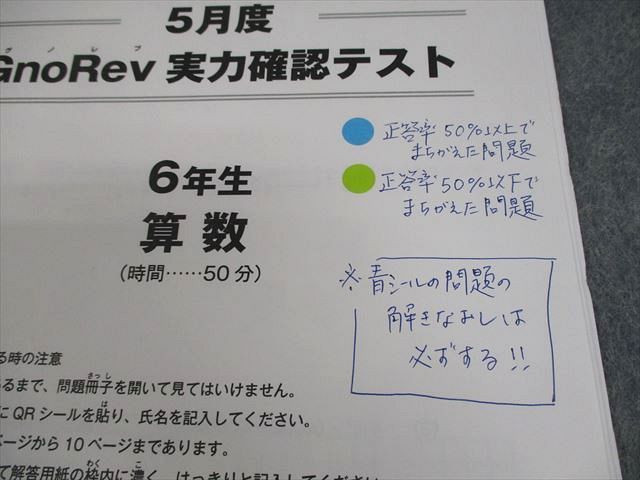 5月度
グノレブ
GnoRev 実力確認テスト
正答率 50%以上で
まちがえた問題
正答率 50%以下で
まちがえた問題
6年生
算数
(時間……50分)
※ 青シールの問題の
解きなおしは
必ずする!!
る時の注意
るまで、問題冊子を開いて見てはいけません。
にQRシールを貼り、氏名を記入してください。
ページから10ページまであります。
て解答用紙の枠内に濃く、はっきりと記入してください